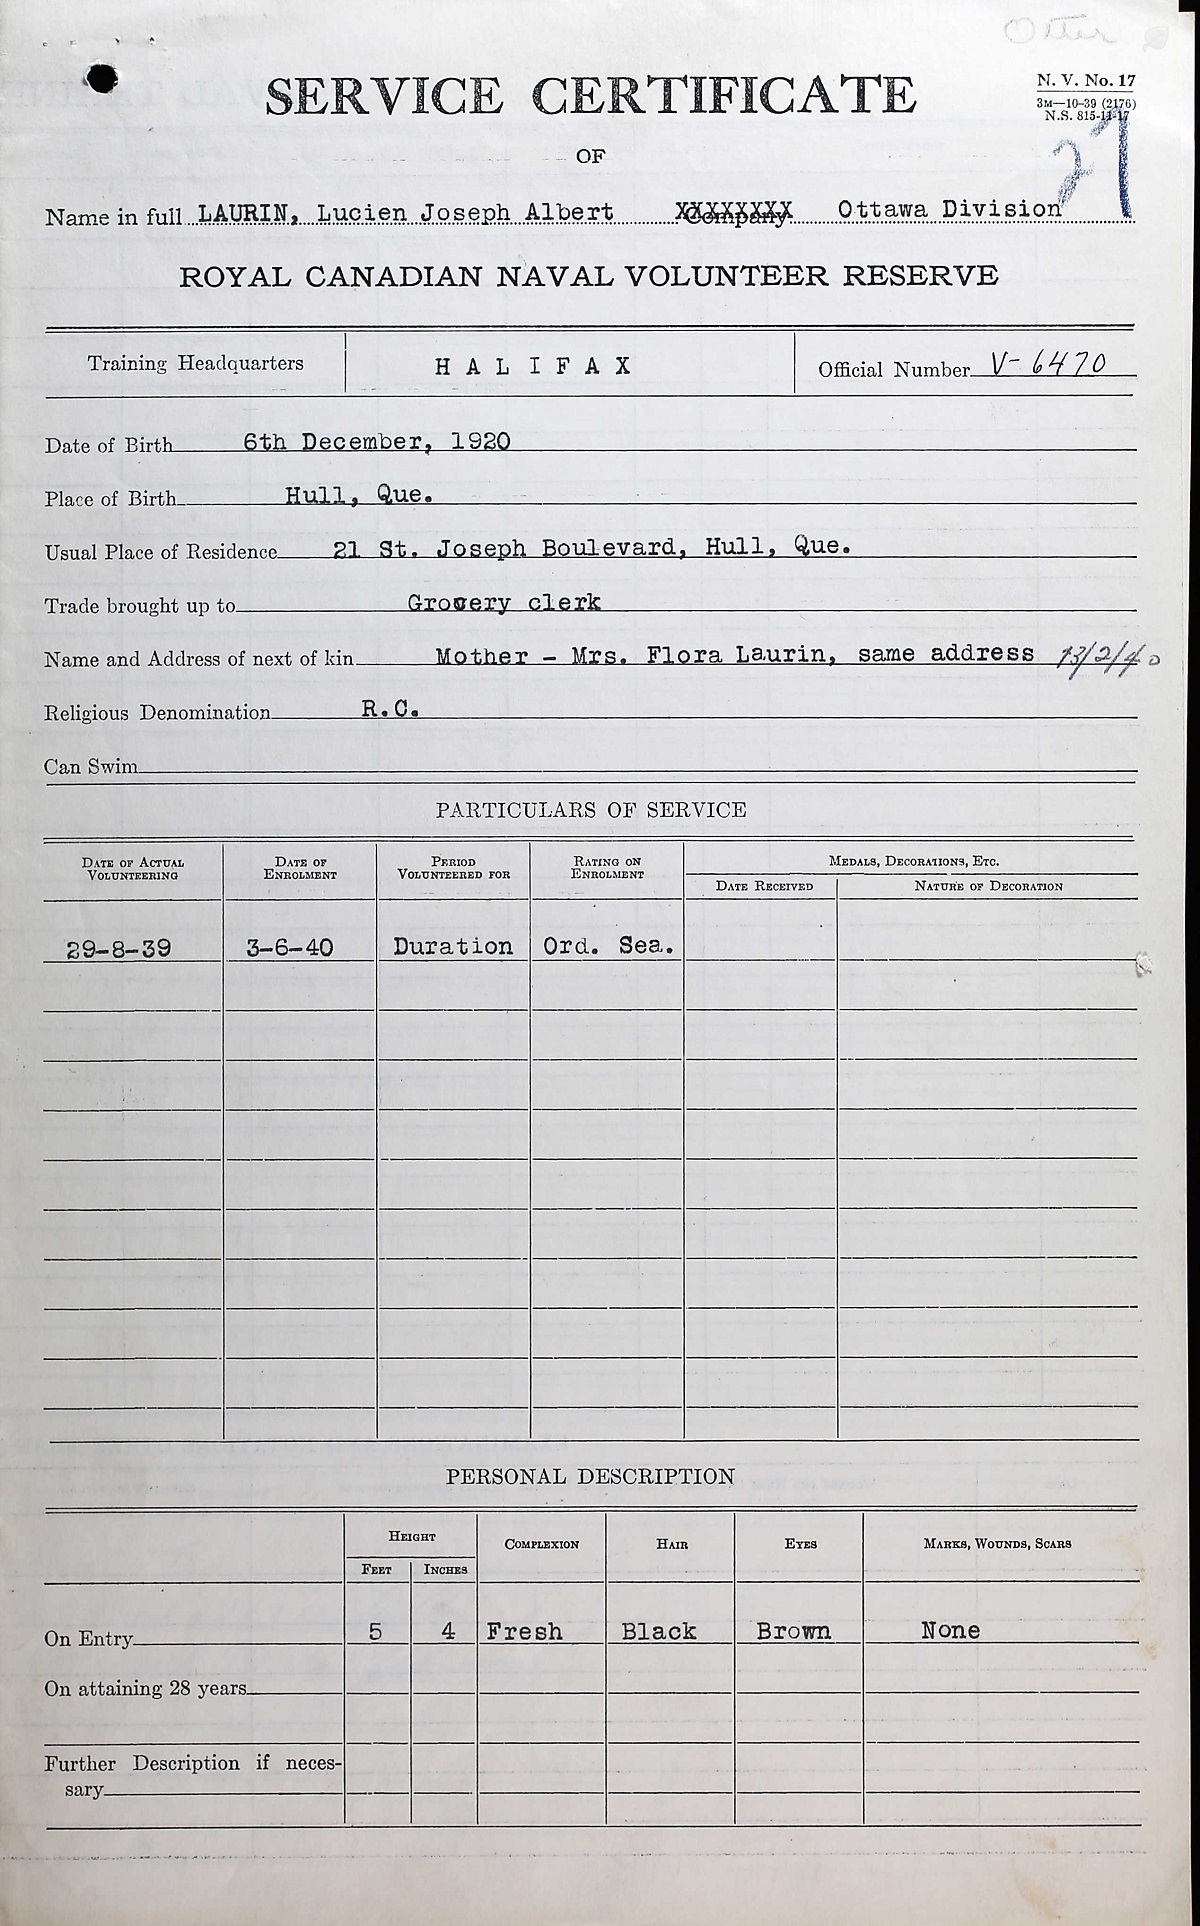 Otter
SERVICE CERTIFICATE
N. V. No. 17
3M—10-39 (2176)
N.S. 815-11-17
OF
27
Name in full LAURIN, Lucien Joseph Albert XXXXXXXX Company Ottawa Division
ROYAL CANADIAN NAVAL VOLUNTEER RESERVE
Training Headquarters HALIFAX Official Number V-6470
Date of Birth 6th December, 1920
Place of Birth Hull, Que.
Usual Place of Residence 21 St. Joseph Boulevard, Hull, Que.
Trade brought up to Grocery clerk
Name and Address of next of kin Mother - Mrs. Flora Laurin, same address 13/2/40
Religious Denomination R.C.
Can Swim
PARTICULARS OF SERVICE
DATE OF ACTUAL VOLUNTEERING DATE OF ENROLMENT PERIOD VOLUNTEERED FOR RATING ON ENROLMENT MEDALS, DECORATIONS, ETC.
DATE RECEIVED NATURE OF DECORATION
29-8-39 3-6-40 Duration Ord. Sea.
PERSONAL DESCRIPTION
HEIGHT COMPLEXION HAIR EYES MARKS, WOUNDS, SCARS
FEET INCHES
On Entry 5 4 Fresh Black Brown None
On attaining 28 years
Further Description if neces-
sary